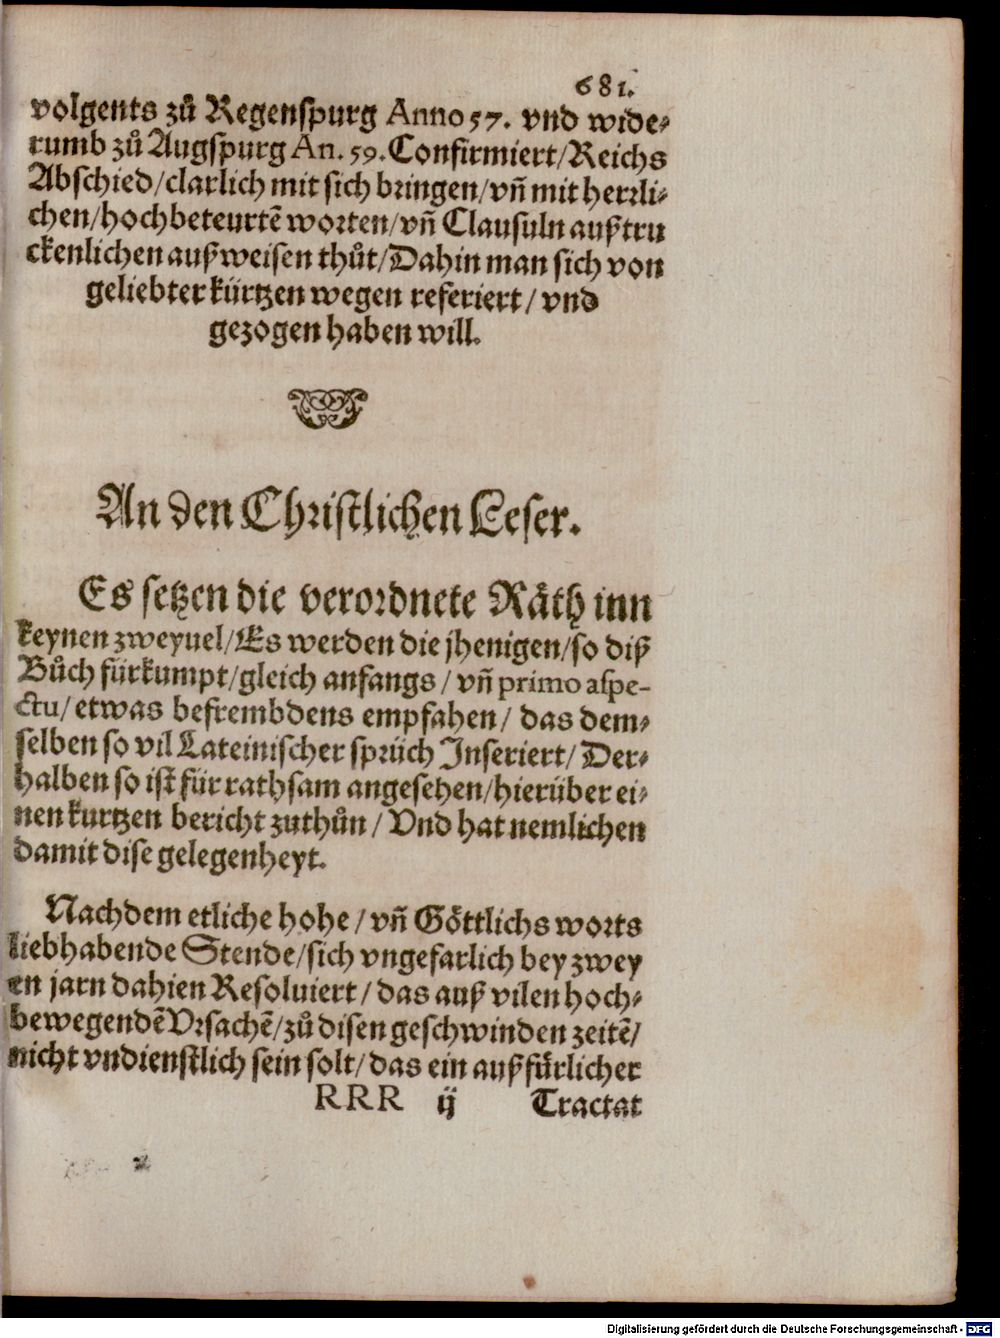 681.
volgents zů Regenspurg Anno 57. vnd wide-
rumb zů Augspurg An. 59. Confirmiert/Reichs
Abschied/clarlich mit sich bringen/vñ mit herrli-
chen/hochbeteurtẽ worten/vñ Clausuln außtru
ckenlichen außweisen thůt/Dahin man sich von
geliebter kürtzen wegen referiert/vnd
gezogen haben will.
An den Christlichen Leser.
Es setzen die verordnete Räth inn
keynen zweyuel/Es werden die jhenigen/so diß
Bůch fürkumpt/gleich anfangs/vñ primo aspe-
ctu/etwas befrembdens empfahen/das dem-
selben so vil Lateinischer sprüch Inseriert/Der-
halben so ist für rathsam angesehen/hierüber ei-
nen kurtzen bericht zuthůn/Vnd hat nemlichen
damit dise gelegenheyt.
Nachdem etliche hohe/vñ Göttlichs worts
liebhabende Stende/sich vngefarlich bey zwey
en jarn dahien Resoluiert/das auß vilen hoch-
bewegendẽ Vrsachẽ/zů disen geschwinden zeitẽ/
nicht vndienstlich sein solt/das ein außfürlicher
RRR ij Tractat
Digitalisierung gefördert durch die Deutsche Forschungsgemeinschaft - DFG